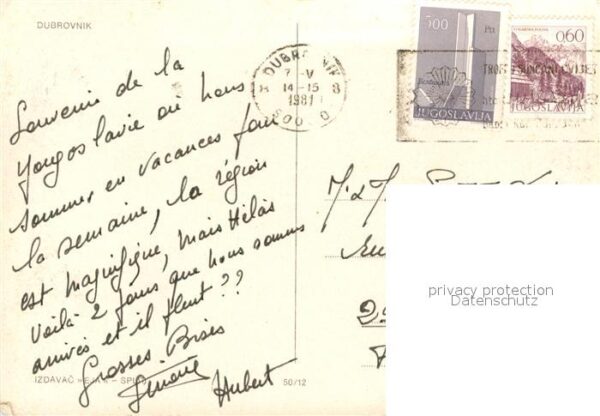 DUBROVNIK
Souvenir de la
Yougoslavie où nous
sommes en vacances pour
la semaine, la région
est magnifique, mais Hélas
voilà 2 jours que nous sommes
arrivés et il pleut ??
Grosses Bises
Hubert
IZDAVAČ - SPLIT
50/12
DUBROVNIK
7-V
14-15
1981
8
5.00
Din
JUGOSLAVIJA
0.60
JUGOSLAVIJA
M. & M.
privacy protection
Datenschutz